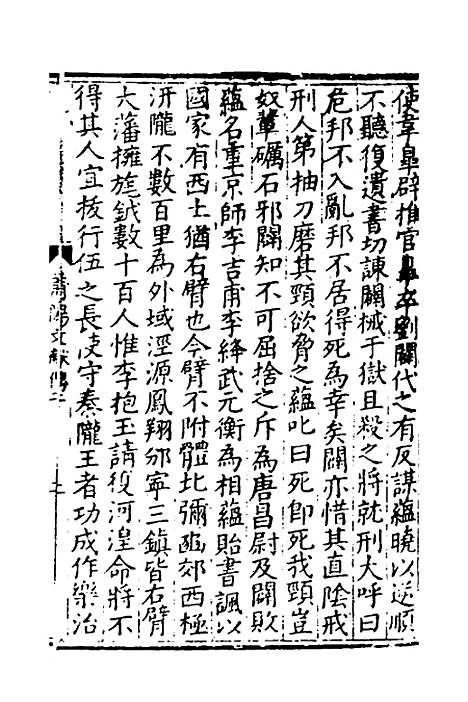 使韋臯辟推官臯卒劉闢代之有反謀蘊曉以逆順
不聽復遺書切諫闢械于獄且殺之將就刑大呼曰
危邦不入亂邦不居得死為幸矣闢亦惜其直陰戒
刑人第抽刀磨其頸欲脅之蘊叱曰死即死我頸豈
奴輩礪石邪闢知不可屈捨之斥為唐昌尉及闢敗
蘊名重京師李吉甫李絳武元衡為相蘊貽書諷以
國家有西土猶右臂也今臂不附體北彌豳郊西極
汧隴不數百里為外域涇源鳳翔邠寧三鎮皆右臂
大藩擁旄鉞數十百人惟李抱玉請復河湟命將不
得其人宜拔行伍之長使守秦隴王者功成作樂治
莆陽文獻傳二